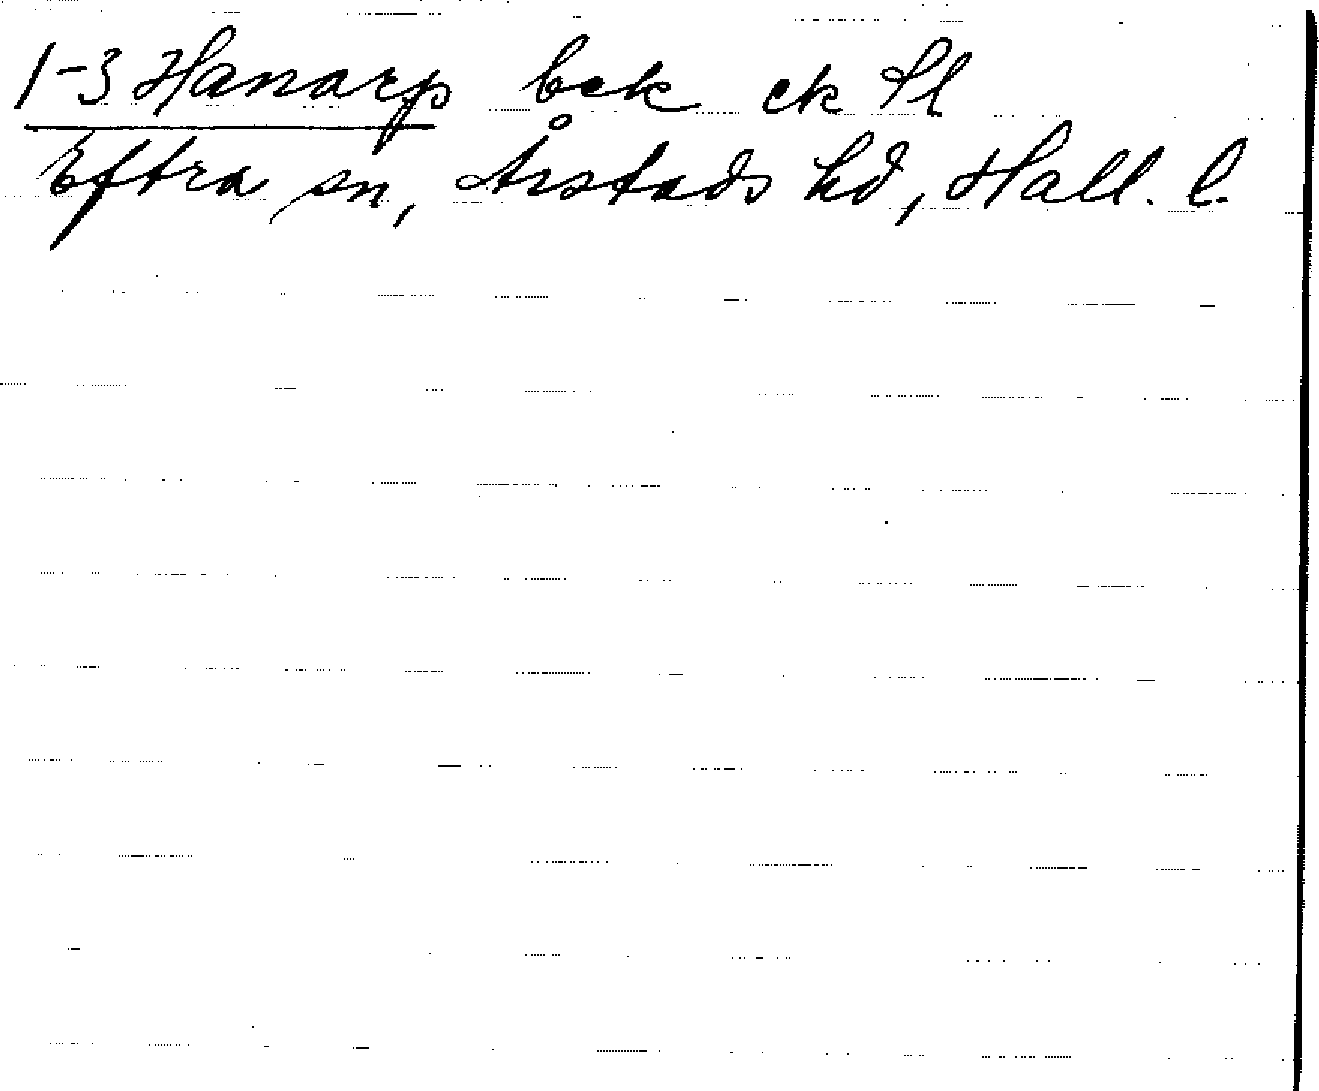 1-3 Hanarp bek ek Sl
Eftra sn, Årstads hd, Hall. l.